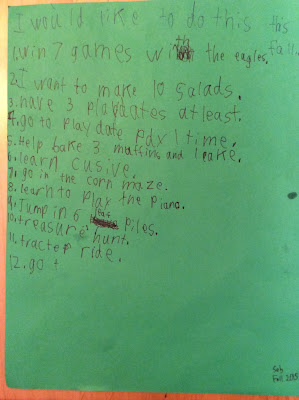 I would like to do this this
fall.
1. win 7 games with the eagles.
2. I want to make 10 salads.
3. have 3 playdates at least.
4. go to play date pdx 1 time.
5. Help bake 3 muffins and 1 cake.
6. learn cusive.
7. go in the corn maze.
8. learn to play the piano.
9. Jump in 6 leaf piles.
10. treasure hunt.
11. tracter ride.
12. go t
Seb
Fall 2015